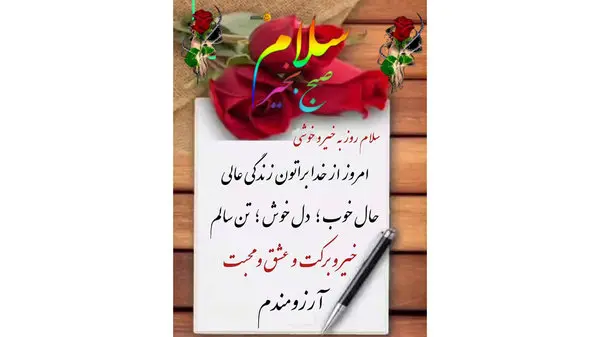 سلام
صبح بخیر
سلام روز به خیر و خوشی
امروز از خدا براتون زندگی عالی
حال خوب ؛ دل خوش ؛ تن سالم
خیر و برکت و عشق و محبت
آرزومندم